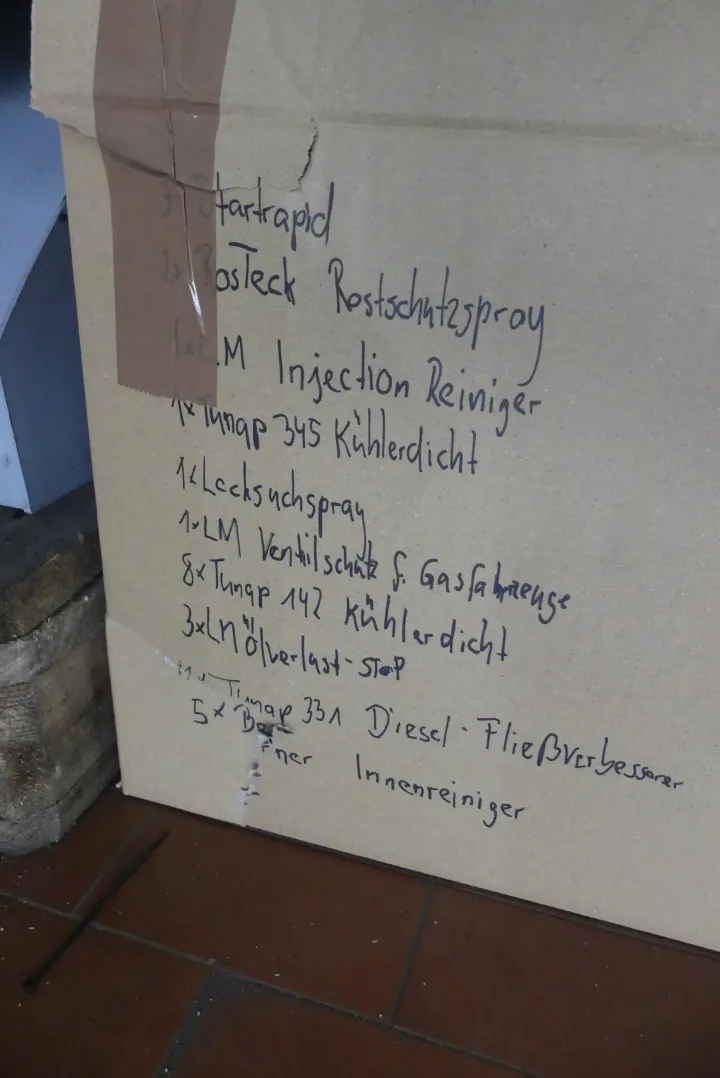 Startrapid
2x Rosteck Rostschutzspray
1x LM Injection Reiniger
1x Tunap 345 Kühlerdicht
1x Lecksuchspray
1x LM Ventilschutz f. Gasfahrzeuge
8x Tunap 142 Kühlerdicht
3x LM Ölverlust-Stop
Tunap 331 Diesel-Fließverbesserer
5x Berner Innenreiniger